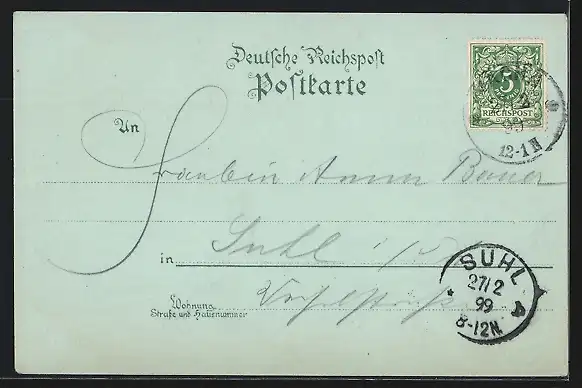 Deutsche Reichspost
Postkarte
5
REICHSPOST
99
12-1N
An
Fräulein Anna Bauer
in Suhl i/
SUHL
27/2
99
8-12N.
* A
Wohnung
Straße und Hausnummer